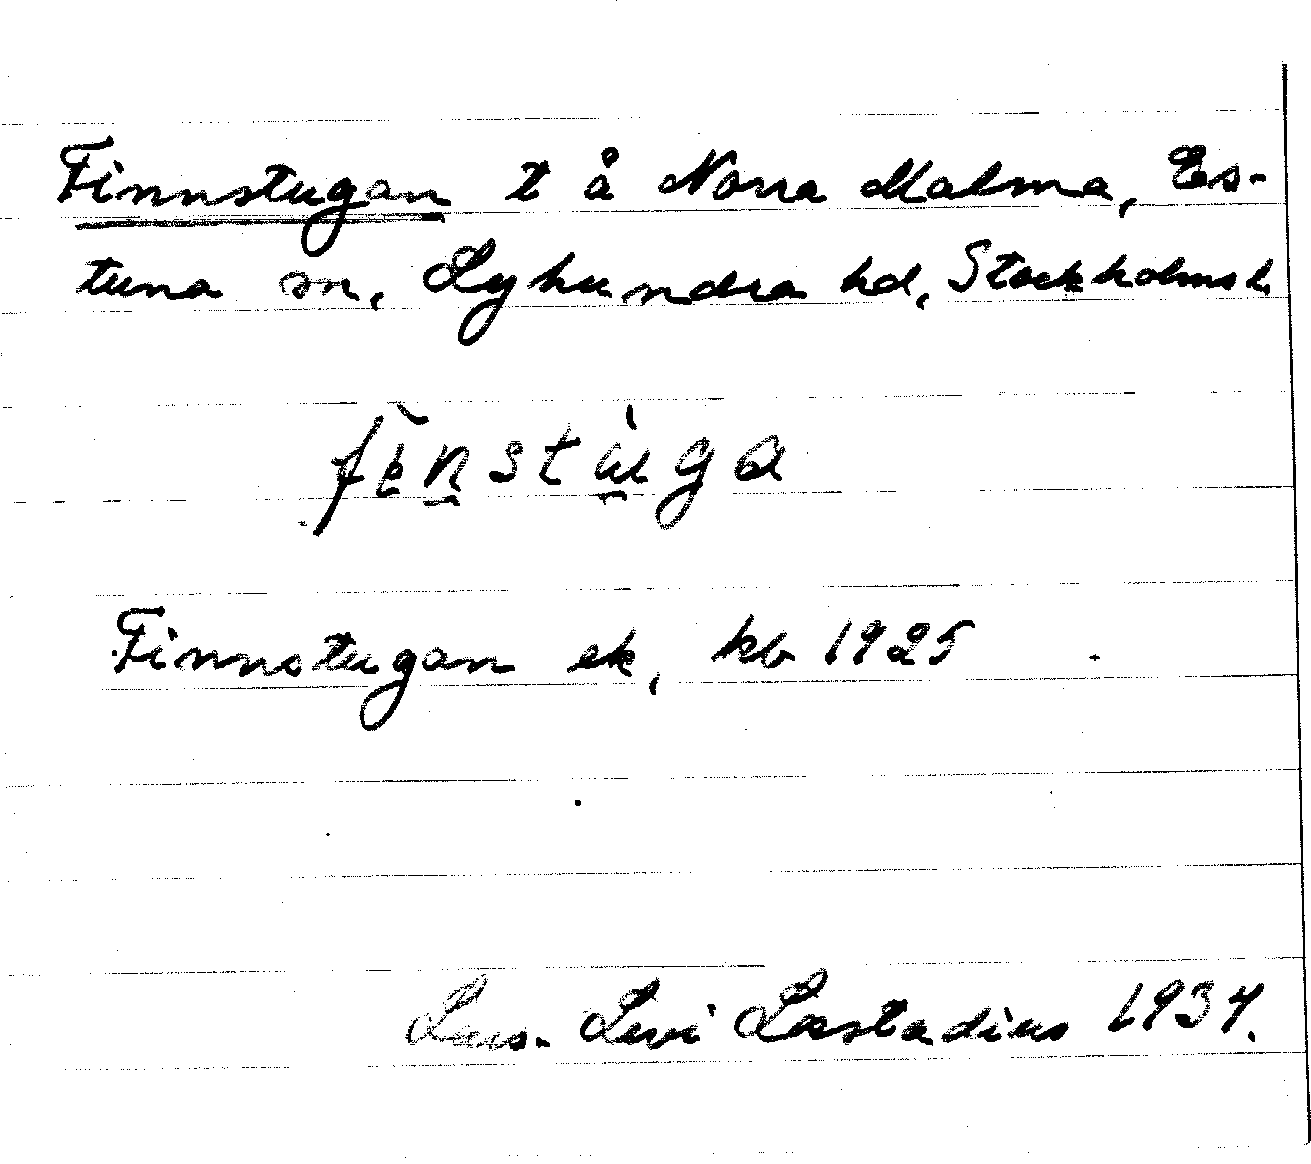 Finnstugan t å Norra Malma, Es-
tuna sn, Lyhundra hd, Stockholms l.
fìnstùga
Finnstugan ek, kb 1925
Lars-Levi Læstadius 1934.